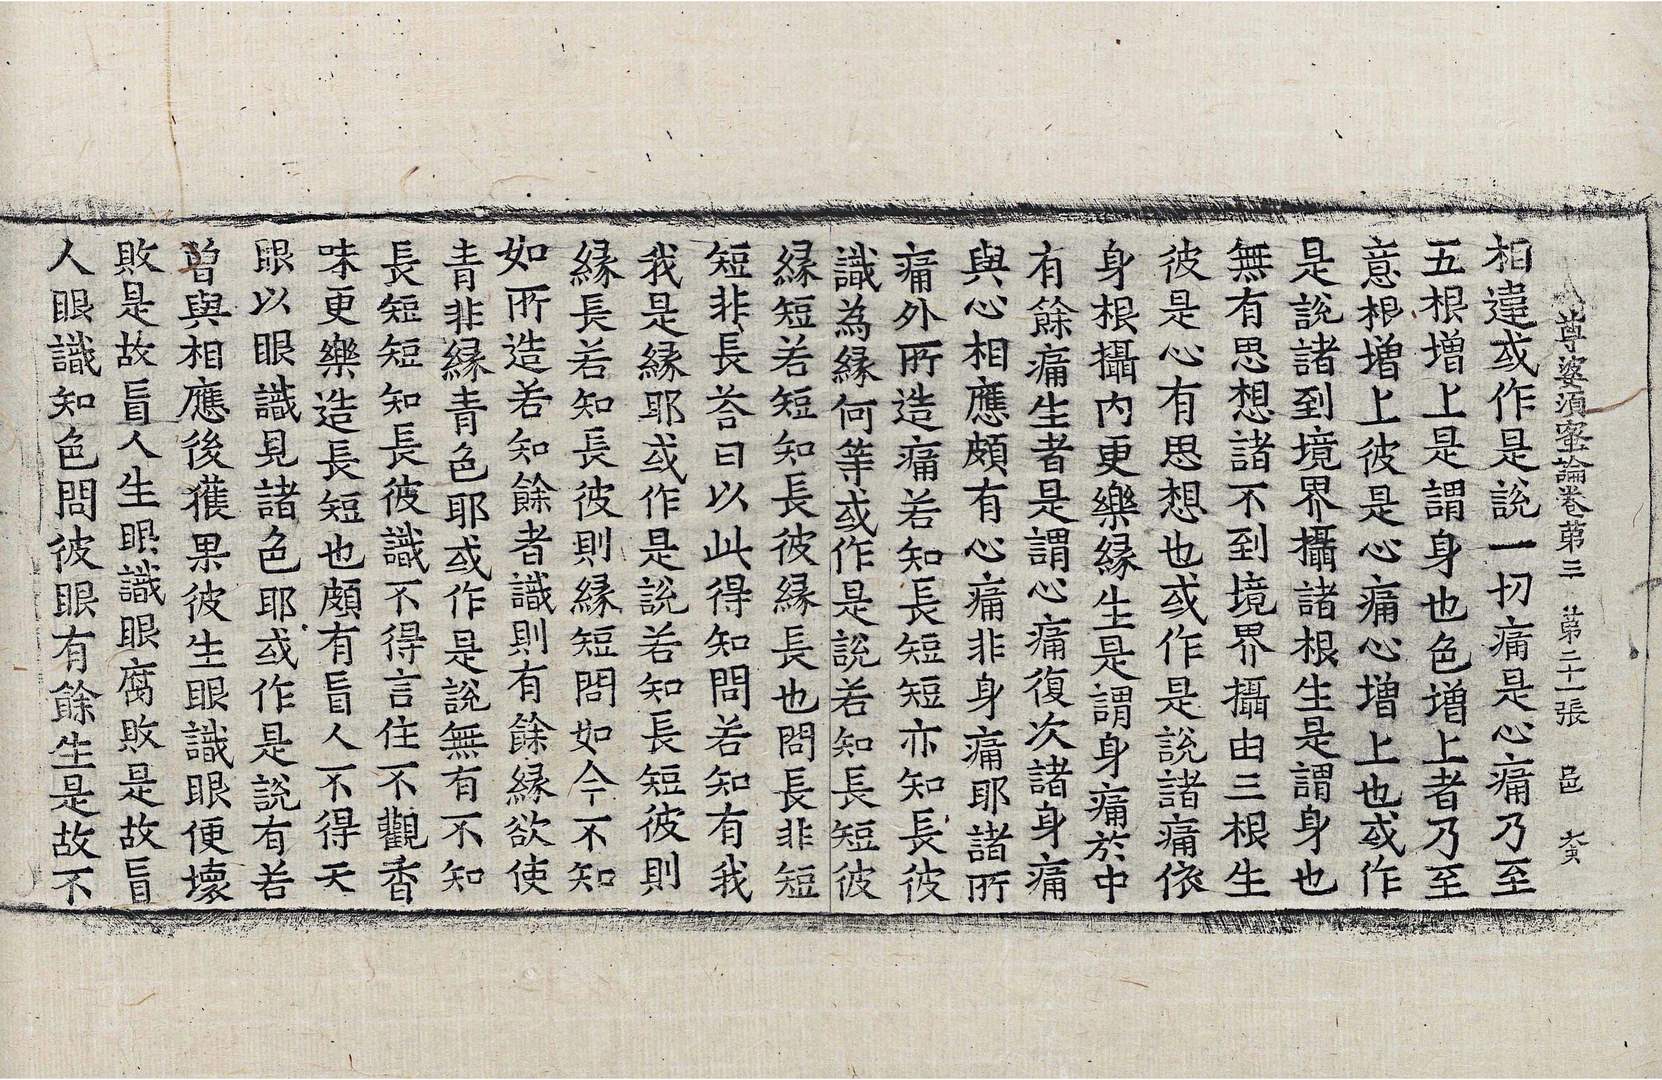 尊婆須蜜論卷第三　第二十一張　邑
相違或作是說一切痛是心痛乃至
五根增上是謂身也色增上者乃至
意根增上彼是心痛心增上也或作
是說諸到境界攝諸根生是謂身也
無有思想諸不到境界攝由三根生
彼是心有思想也或作是說諸痛依
身根攝內更樂緣生是謂身痛於中
有餘痛生者是謂心痛復次諸身痛
與心相應頗有心痛非身痛耶諸所
痛外所造痛若知長短短亦知長彼
識為緣何等或作是說若知長短彼
緣短若短知長彼緣長也問長非短
短非長荅曰以此得知問若知有我
我是緣耶或作是說若知長短彼則
緣長若知長彼則緣短問如今不知
如所造若知餘者識則有餘緣欲使
青非緣青色耶或作是說無有不知
長短短知長彼識不得言住不觀香
味更樂造長短也頗有盲人不得天
眼以眼識見諸色耶或作是說有若
曾與相應後獲果彼生眼識眼便壞
敗是故盲人生眼識眼腐敗是故盲
人眼識知色問彼眼有餘生是故不